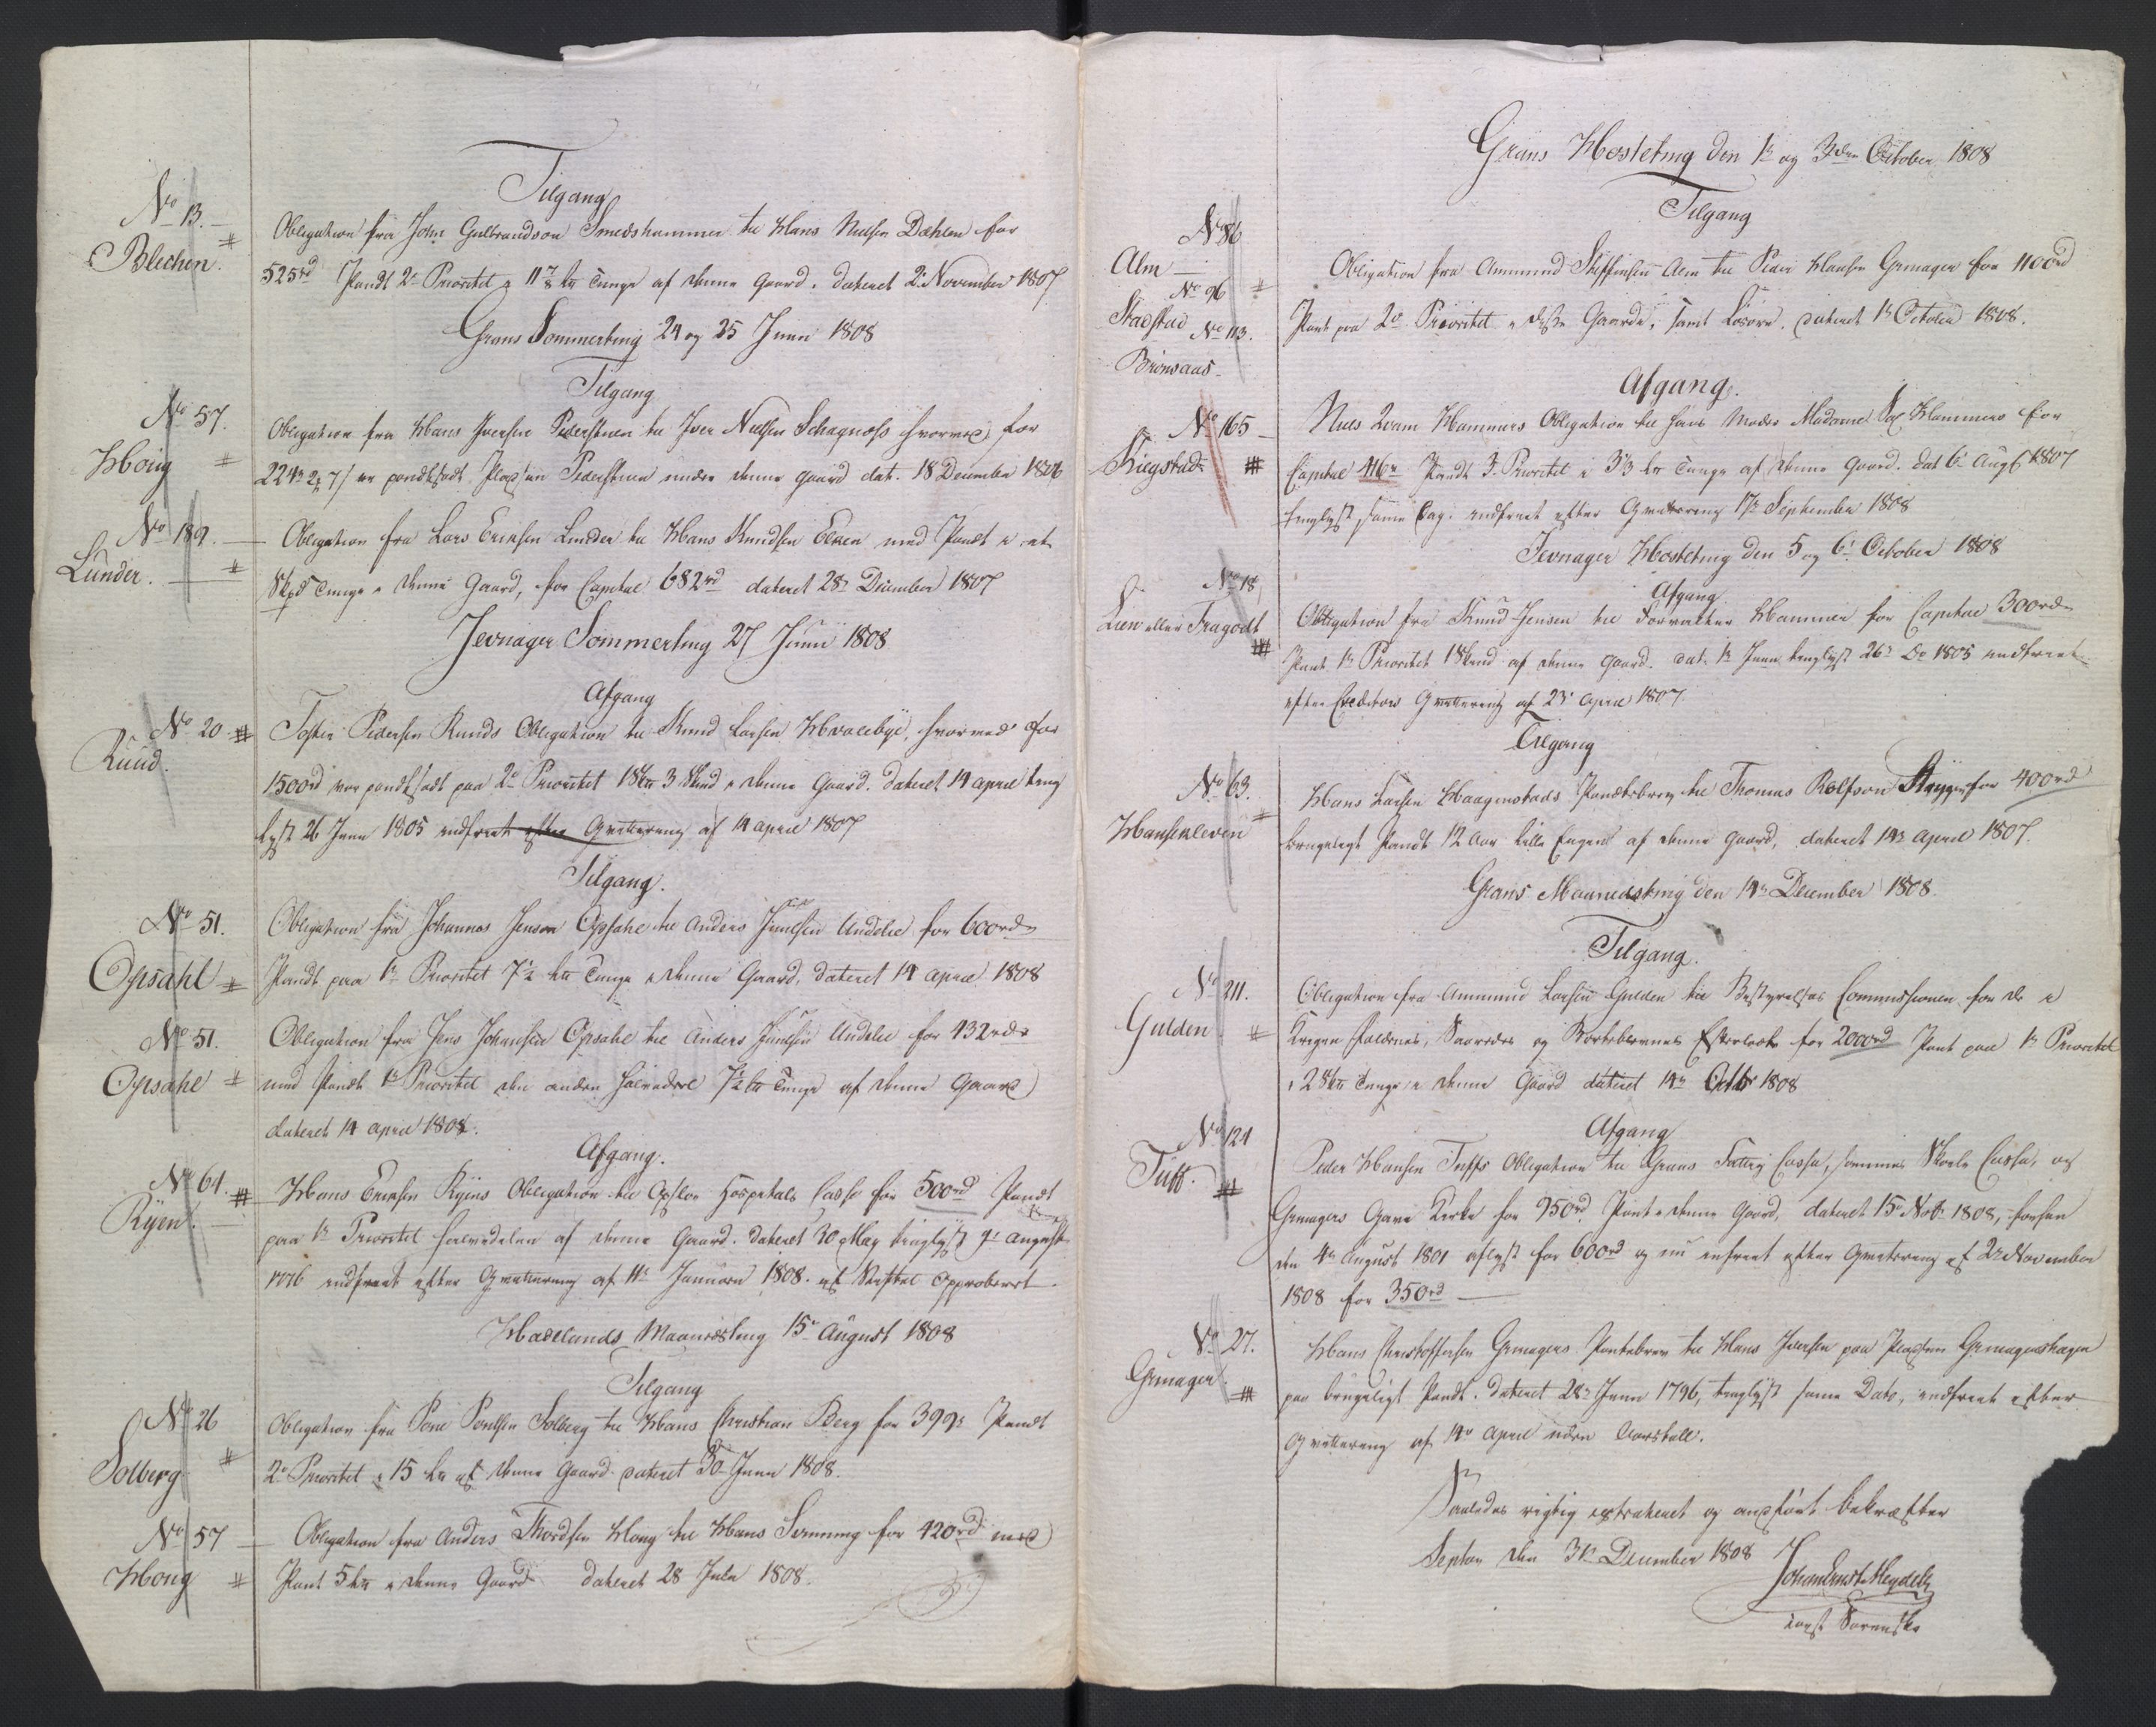 Tilgang
No 13.
Blechen.
Obligation fra John Gulbrandson Smedshammer til Hans Nielsen Dæhlen for
525rd Pandt 2d Prioritet i 11 7/8 lb Tunge af denne Gaard. dateret 2 November 1807
Grans Sommerting 24 og 25 Junii 1808
Tilgang
No 57.
Houg
Obligation fra Hans Iversen Pederstuen til Iver Nielsen Schagnæss hvorved for
224rd 2 7/ er pandtsadt Pladsen Pederstuen under denne gaard dat. 18 December 1806
No 189.
Lunder.
Obligation fra Lars Eriksen Lunder til Hans Knudsen Elken med Pandt i et
Skpd Tunge i denne Gaard, for Capital 682rd dateret 28 December 1807
Jevnager Sommerting 27 Junii 1808
Afgang
No 20
Ruud.
Pedersen Ruuds Obligation til Knud Larsen Hvalebye, hvorved for
1500rd var pandtsadt paa 2d Prioritet 18 lb 3 Skind i denne Gaard. dateret 14 april ting
lyst 26 Junii 1805 indfriet efter Qvittering af 14 april 1807
Tilgang.
No 51.
Opsahl
Obligation fra Johannes Jensen Opsahl til Anders Juulsen Undelie for 600rd
Pandt paa 1 Prioritet 7 1/2 lb Tunge i denne Gaard, dateret 14 april 1808
No 51.
Opsahl
Obligation fra Jens Johansen Opsahl til Anders Juulsen Undelie for 432rd
med Pandt 1 Prioritet den anden halvedeel 7 1/2 lb Tunge af denne Gaard
dateret 14 april 1808.
Afgang.
No 64.
Ryen.
Hans Eriksen Ryens Obligation til Opsloe Hospitals Casse for 500rd Pandt
paa 1 Prioritet halvedelen af denne Gaard. dateret 30 May tinglyst 9 august
1776 indfriet efter Qvittering af 11 Januarii 1808. af Stiftet Approberet
Hadelands Maanedsting 15 August 1808
Tilgang
No 26
Solberg
Obligation fra Poul Poulsen Solberg til Hans Christian Berg for 399rd Pandt
2d Prioritet i 15 lb af denne Gaard dateret 30 Junii 1808.
No 57
Houg
Obligation fra Anders Thordsen Houg til Hans Semming for 420rd med
Pant 5 lb i denne Gaard dateret 28 Julii 1808.
Grans Høsteting den 1 og 3die October 1808
Tilgang
No 86
Alm
No 96
Stadstad No 113.
Brønsaas
Obligation fra Ammund Steffensen Alm til Peder Hansen Grinager for 1100rd
Pant paa 2d Prioritet i disse Gaarde, samt Løsøre. dateret 1 October 1808.
Afgang.
No 165
Kiegstad
Niels Qvam Hammers Obligation til hans Moder Madame Hammers for
Capital 416rd Pandt 3 Prioritet i 3 1/3 lb Tunge af denne Gaard. dat 6 Aug 1807
tinglyst samme Dag. indfriet efter Qvittering 17 September 1808
Jevnager Høsteting den 5 og 6 October 1808
Afgang
No 18
Lien eller Fragodt
Obligation fra Knud Jensen til Forvalter Hammer for Capital 300rd
Pant 1 Prioritet 1 Skind af denne gaard. dat. 1 Junii tinglyst 26 Do 1805 indfriet
efter Creditors Qvittering af 23 april 1807.
Tilgang
No 63.
Hansekleven
Hans Larsen Haagenstads Pandtebrev til Thomas Rolfson for 400rd
brugeligt Pandt 12 Aar Lille Engen af denne gaard, dateret 14 april 1807.
Grans Maanedsting den 14 December 1808.
Tilgang.
No 211.
Gulden
Obligation fra Ammund Larsen Gulden til Bestyrelses Commissionen for de i
Krigen Faldnes, Saaredes og Bortblevnes Efterladte for 2000rd Pant paa 1 Prioritet
i 2 Skpd Tunge i denne Gaard dateret 14 Octbr 1808
Afgang
No 124
Tuff.
Peder Hansen Tuffs Obligation til Grans Fattig Cassa, sammes Skole Cassa, og
Grinagers Gave Kirke for 950rd. Pant i denne Gaard, dateret 15 Novb 1808, forhen
den 4 August 1801 aflyst for 600rd og nu indfriet efter Qvittering af 2 November
1808 for 350rd
No 27.
Grinager.
Hans Christoffersen Grinagers Pantebrev til Hans Iversen paa Pladsen Grinagershagen
paa brugeligt Pandt. dateret 28 Junii 1796, tinglyst samme Dato, indfriet efter
Qvittering af 14 April uden Aarstall.
Saaledes rigtig extraheret og anført bekræfter
Septon den 31 December 1808
Johan Ernst Heydels
const Sorensk